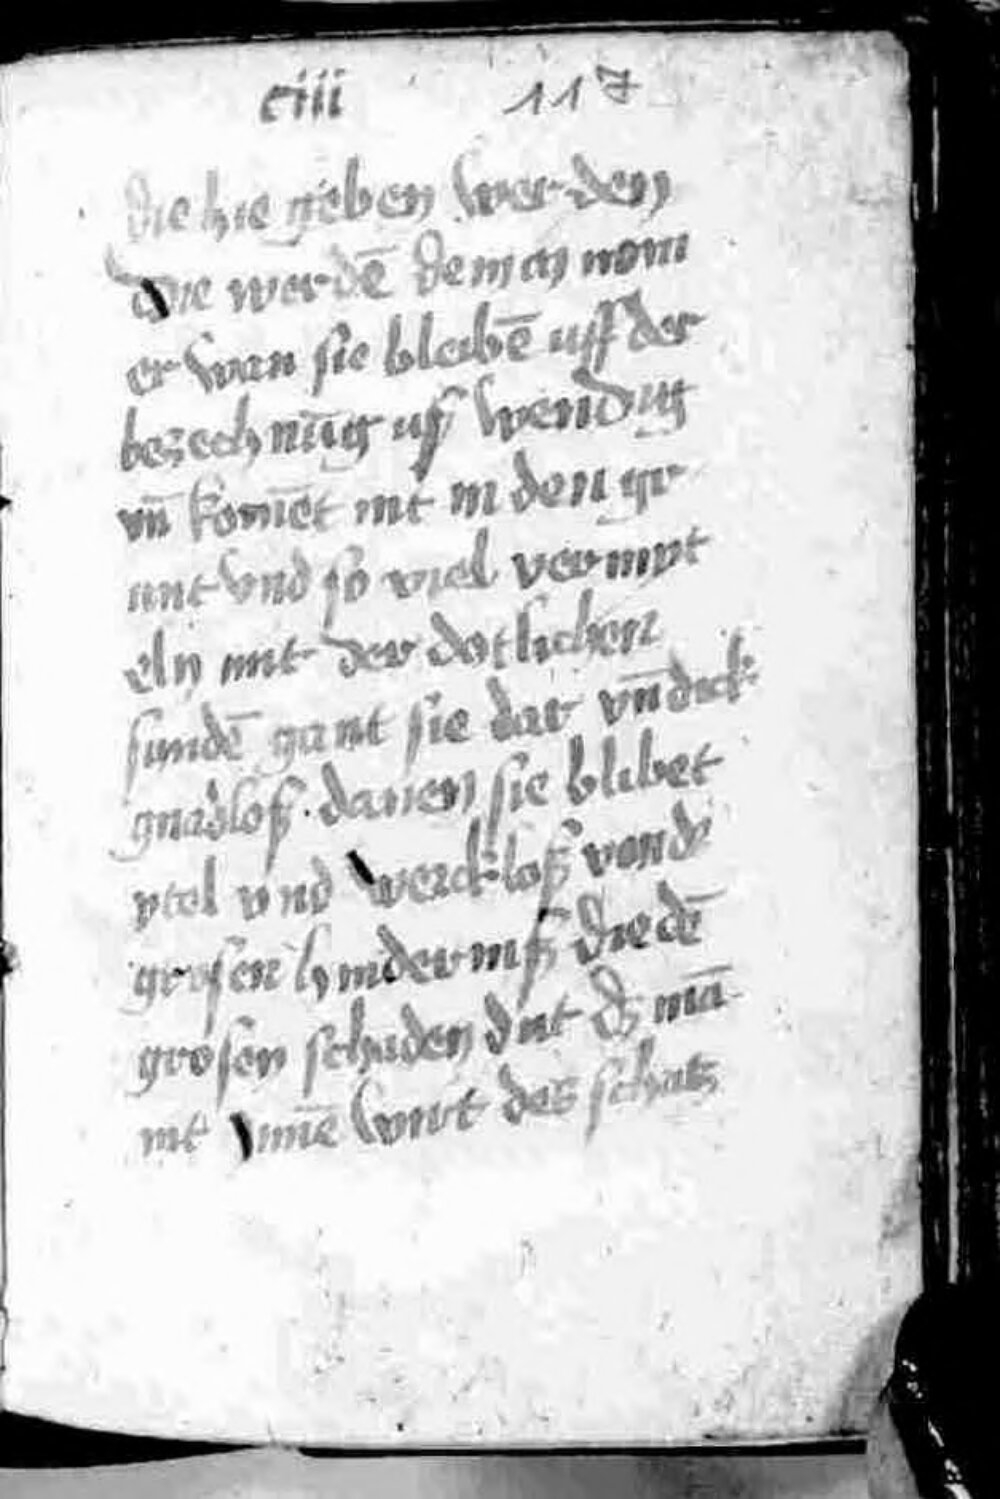 ciii 117
die hie geben werden
Die werdē dem nom
er wan sie bleibē uff der
bezechnūg uß wendig
vn̄ komēt nit in den gr
unt vnd so viel vermyt
eln mit der dotlichen
sundē gant sie dar vn̄ dick
gnadloß · danen sie blibet
ytel vnd werckloß von d
grosen hynderniß die dē
grosen schaden dut dz mā
nit ynnē wirt des schatz